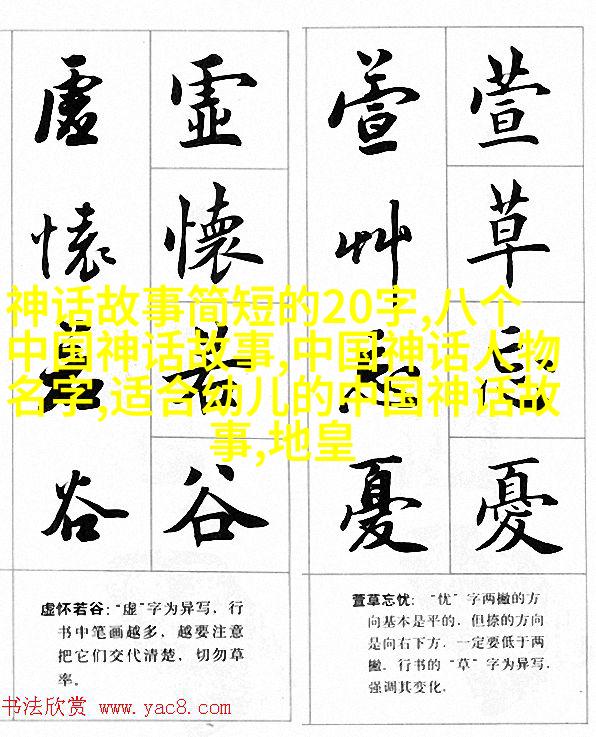 虛懷若谷
虛懷若谷
萱艸忘憂
萱草忘憂
神话故事简短的20字,八个
中国神话故事,中国神话人物
名字,适合幼儿的中国神话故
事,地皇
虚怀若谷:“虚”字为异写，行
书中笔画越多，越要注意
把它们交代清楚，切勿草
率。
萱草忘忧:“忧”字两撇的方
向基本是平的，但捺的方向
是向右下方，一定要低于两
撇。行书的“草”字为异写，
强调其变化。
书法欣赏 www.yac8.com